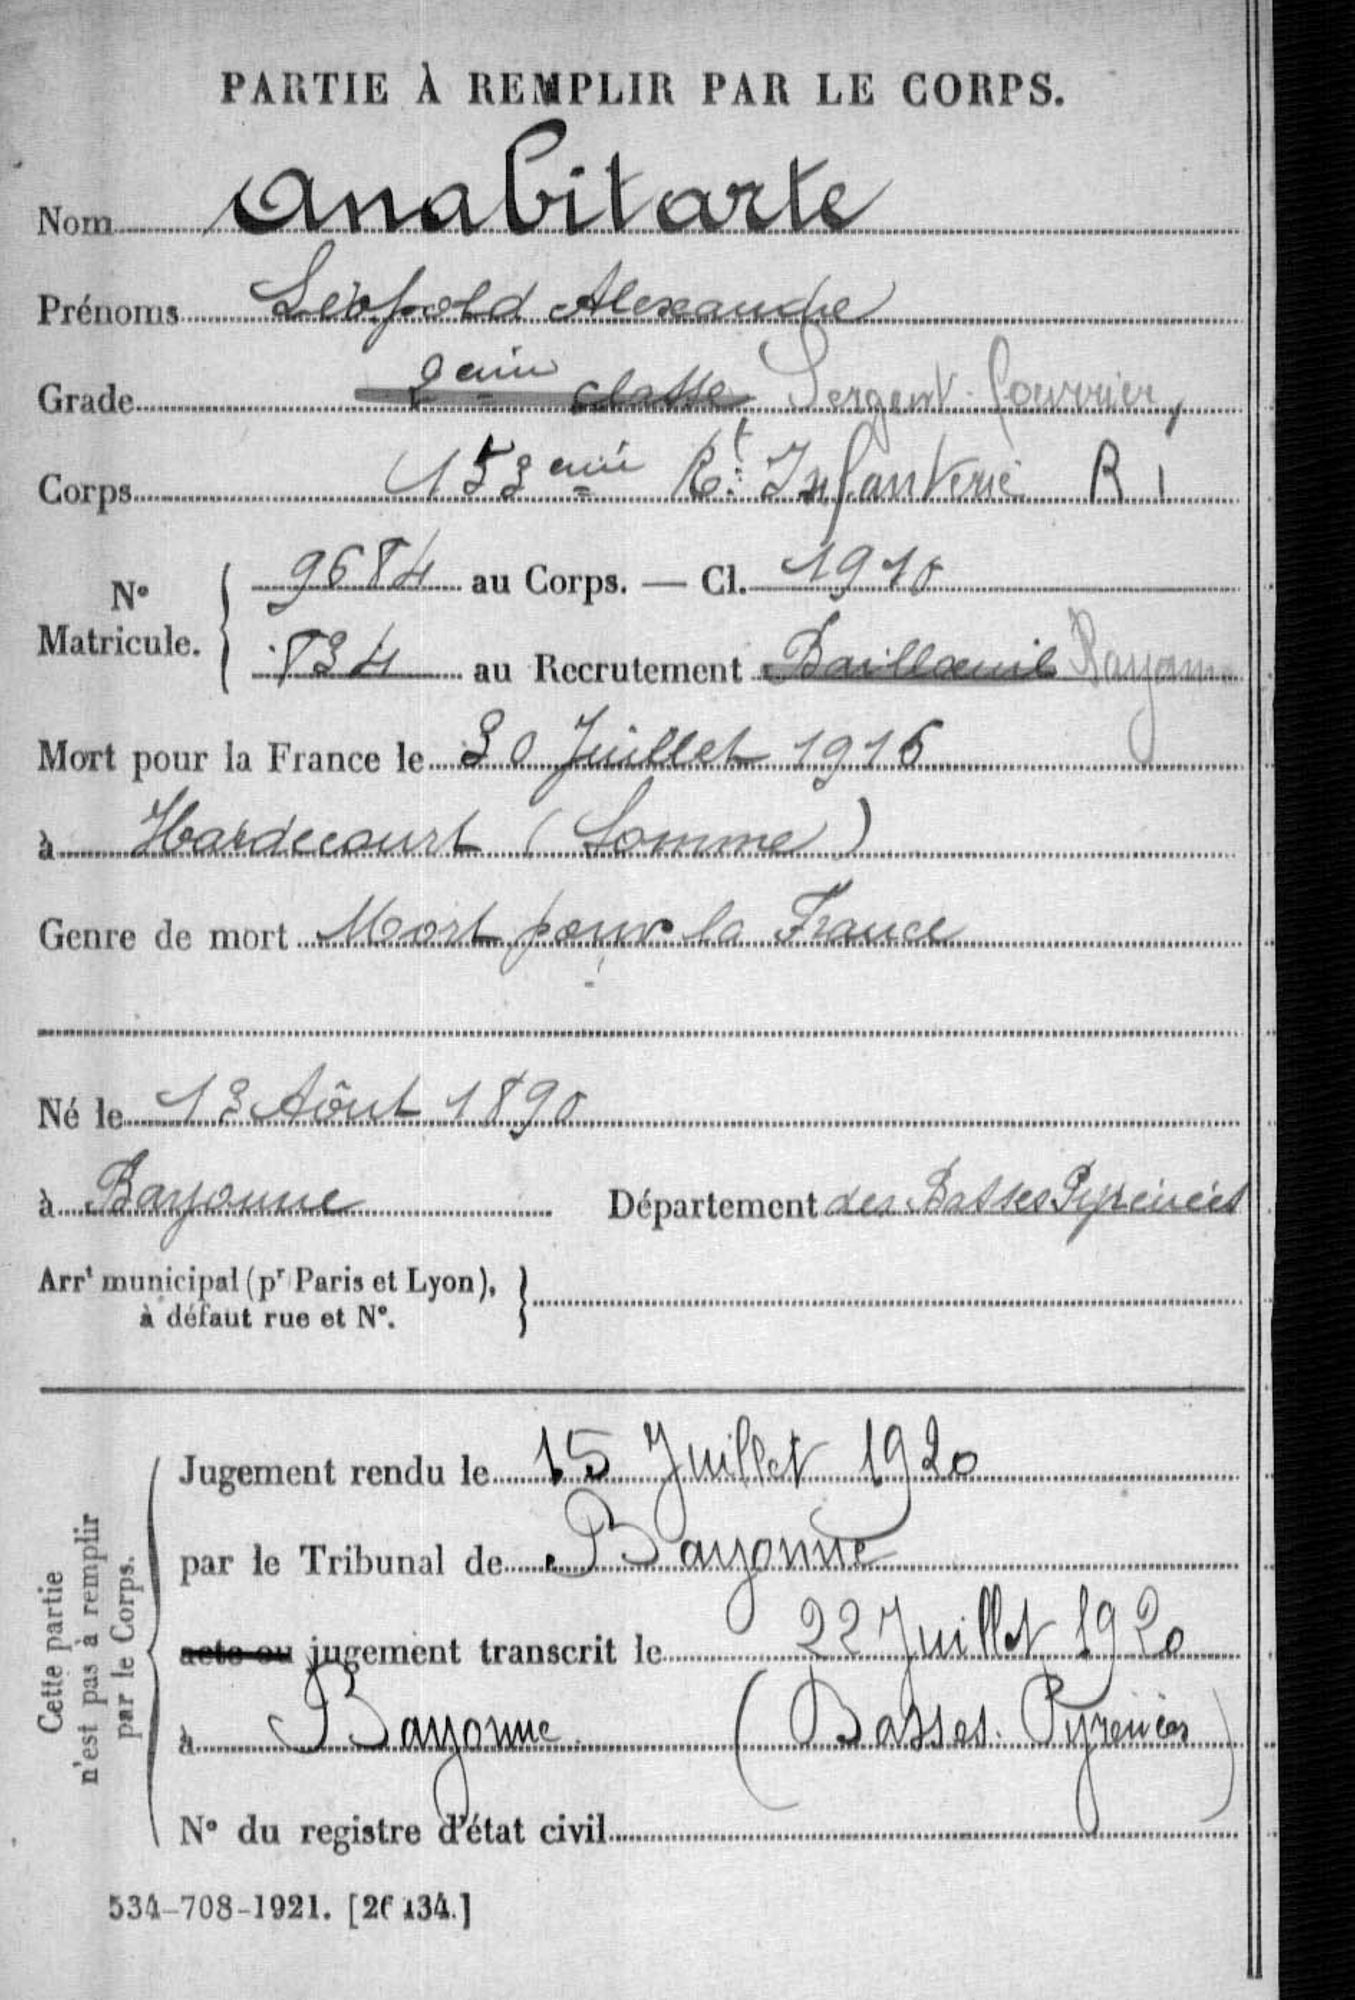 PARTIE À REMPLIR PAR LE CORPS.
Nom Anabitarte
Prénoms Léopold Alexandre
Grade 2eme classe Sergent-fourrier,
Corps 153eme Rt. Infanterie R I
No Matricule. { 9684 au Corps. — Cl. 1910
834 au Recrutement Bailloeuil Bayonne
Mort pour la France le 30 Juillet 1916
à Hardecourt (Somme)
Genre de mort Mort pour la France
Né le 13 Aôut 1890
à Bayonne Département des Basses Pyrénées
Arrt municipal (pr Paris et Lyon), }
à défaut rue et No.
Cette partie
n'est pas à remplir
par le Corps.
Jugement rendu le 15 Juillet 1920
par le Tribunal de Bayonne
acte ou jugement transcrit le 22 Juillet 1920
à Bayonne (Basses. Pyrénées)
No du registre d'état civil
534-708-1921. [26434.]